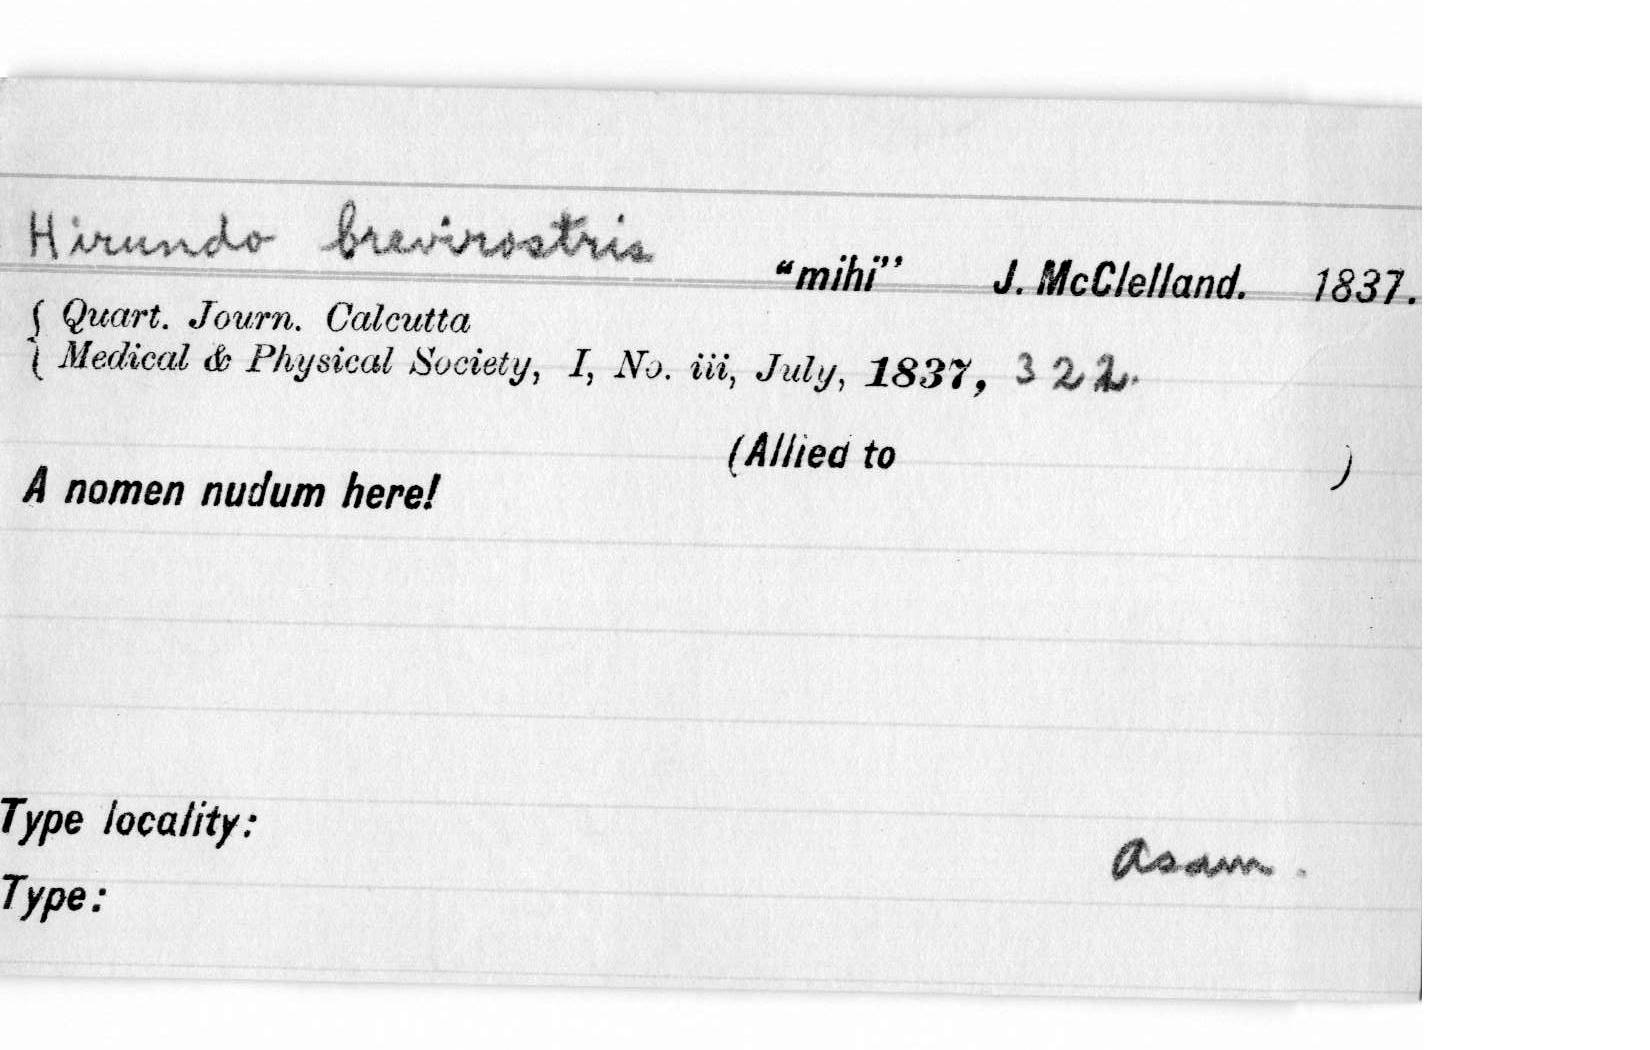 Hirundo brevirostris "mihi" J. McClelland. 1837.
{ Quart. Journ. Calcutta
{ Medical & Physical Society, I, No. iii, July, 1837, 322.
(Allied to )
A nomen nudum here!
Type locality:
Asam.
Type: